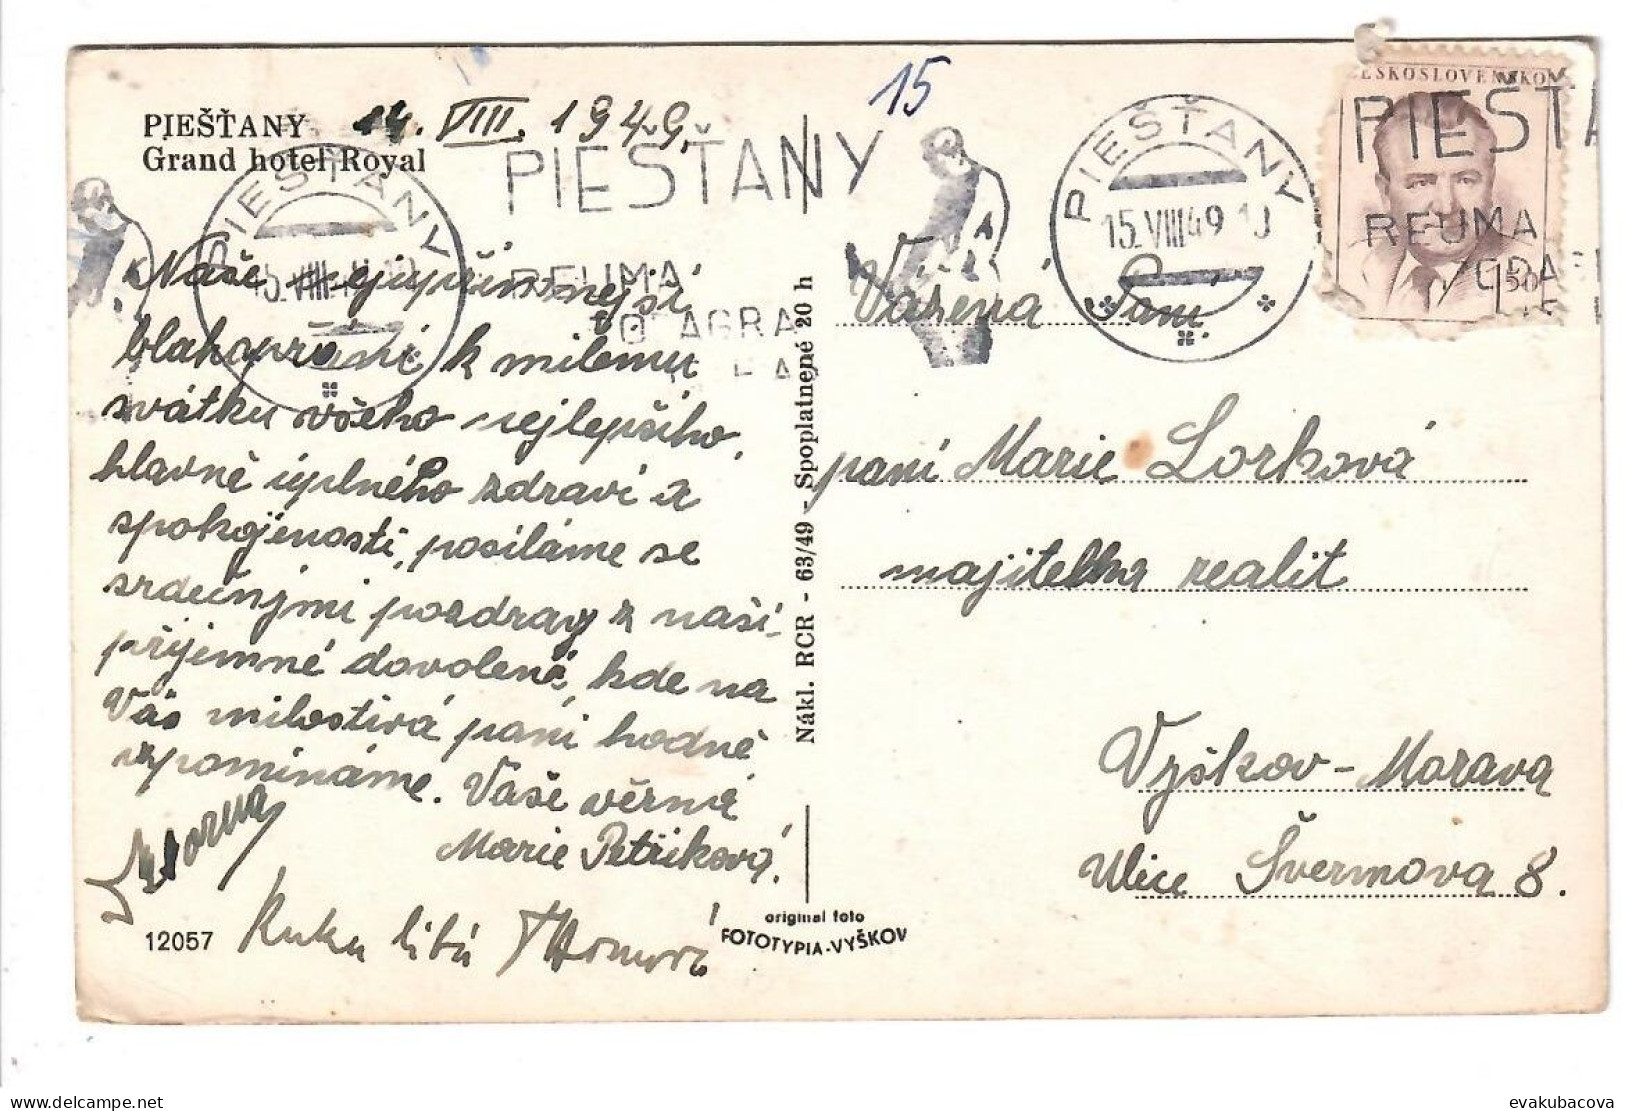 15
PIEŠŤANY
Grand hotel Royal
14. VIII. 1949.
PIEŠŤANY
REUMA
AGRA
PIEŠŤANY
15.VIII.49
ČESKOSLOVENSKO
PIEŠŤA
REUMA
1,50
Naše nejupřímnejší
blahopřání k milému
svátku všeho nejlepšího,
hlavně úplného zdraví a
spokojenosti, posíláme se
srdečnými pozdravy z naší
příjemné dovolené, kde na
Vás milostivá paní hodně
vzpomínáme. Vaše věrná
Marie Petříková.
Ruku líbá
12057
Nákl. RCR - 63/49 - Spoplatnené 20 h
original foto
FOTOTYPIA-VYŠKOV
Vážená Paní
paní Marie Lorková
majitelka realit
Vyškov - Morava
Ulice Švermova 8.
delcampe.net
evakubacova